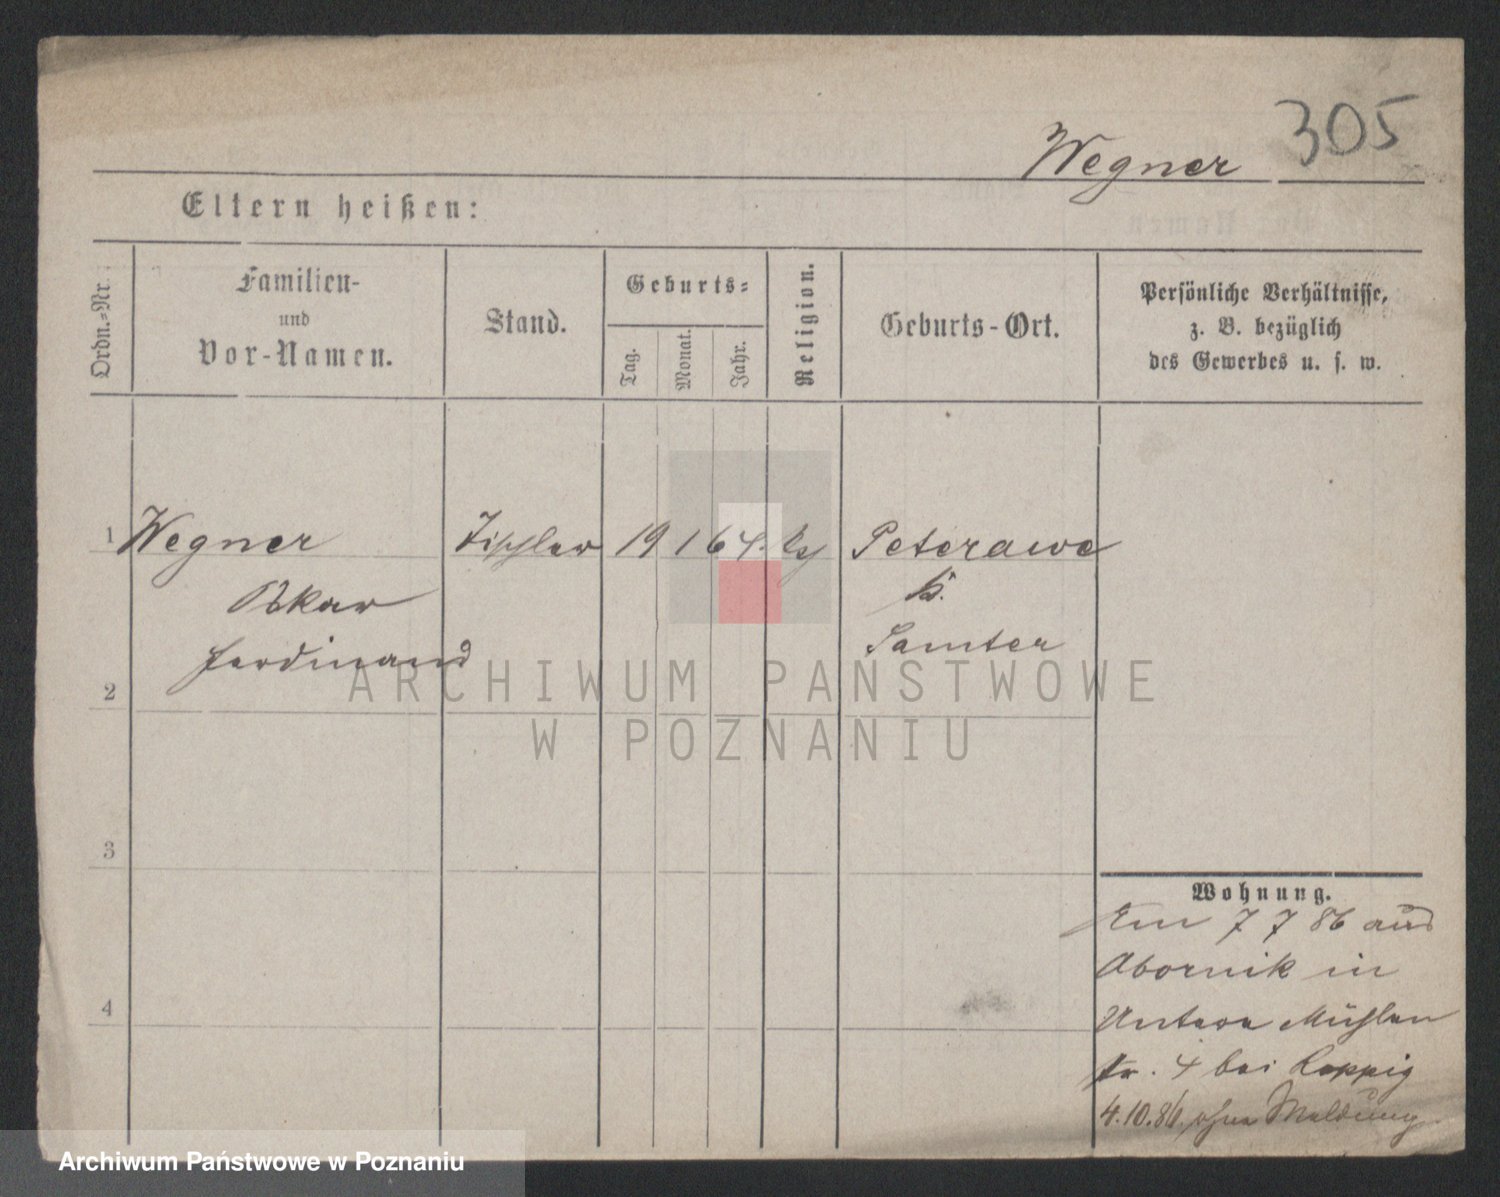 305
Wegner
Eltern heißen:
Ordn.-Nr.
Familien-
und
Vor-Namen.
Stand.
Geburts-
Tag.
Monat.
Jahr.
Religion.
Geburts-Ort.
Persönliche Verhältnisse,
z. B. bezüglich
des Gewerbes u. s. w.
1 Wegner Tischler 19 1 64. Peterawe
Oskar K.
Ferdinand Samter
2
3
4
Wohnung.
7 7 86 aus
Obornik in
Untere Mühlen
str. 4 bei
4.10.86. ohne Meldung
ARCHIWUM PAŃSTWOWE
W POZNANIU
Archiwum Państwowe w Poznaniu